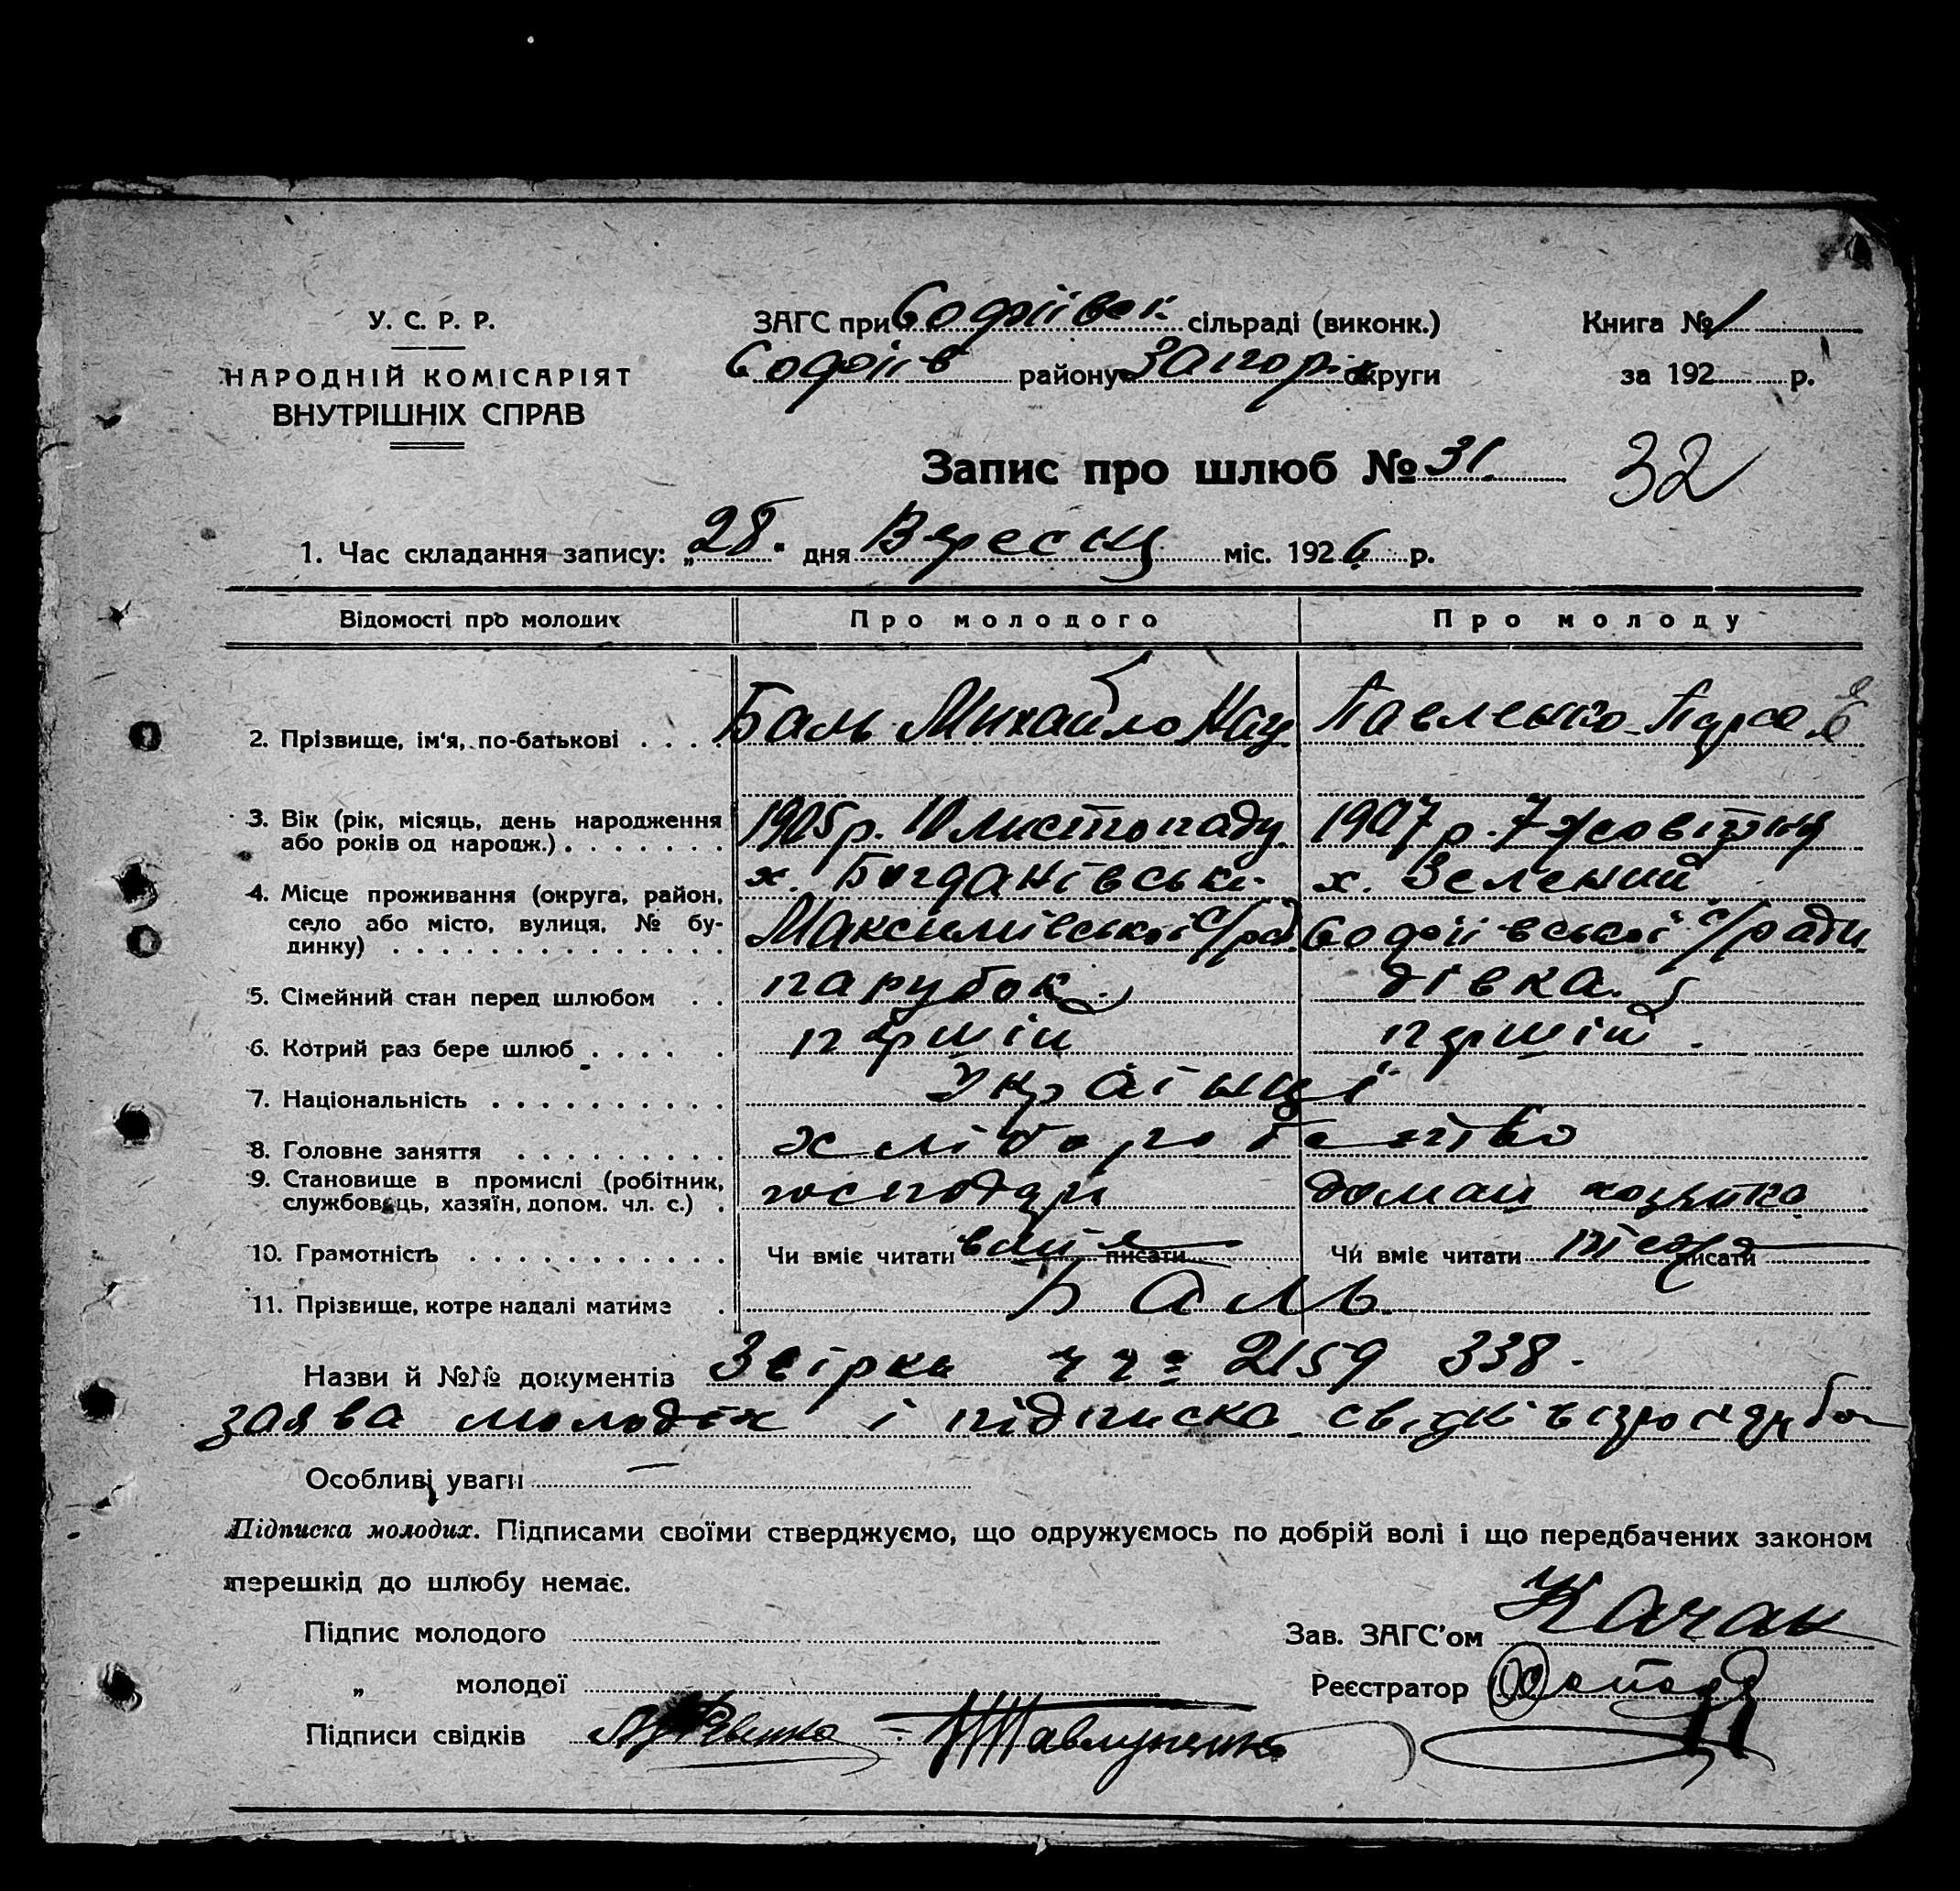 У. С. Р. Р.
НАРОДНІЙ КОМІСАРІЯТ
ВНУТРІШНІХ СПРАВ
ЗАГС при Софіївск. сільраді (виконк.)
Софіїв району Запоріз округи
Книга № 1
за 192 р.
Запис про шлюб № 31. 32
1. Час складання запису: „28." дня Вересня міс. 1926 р.
Відомості про молодих Про молодого Про молоду
2. Прізвище, ім'я, по-батькові . . . . Баль Михайло Павленко
3. Вік (рік, місяць, день народження або років од народж.) . . . . . . . 1905 р. 10 листопаду 1907 р. 7 жовтня
4. Місце проживання (округа, район, село або місто, вулиця, № будинку) . . . . . . . . . . . . . . х. Богданівські Максимівської с/рад. х. Зелений Софіївської с/ради
5. Сімейний стан перед шлюбом . . парубок. дівка.
6. Котрий раз бере шлюб . . . . . перший перший.
7. Національність . . . . . . . . . . Українці
8. Головне заняття . . . . . . . . . хліборобство
9. Становище в промислі (робітник, службовець, хазяїн, допом. чл. с.) . господар домаш хозяйка
10. Грамотність . . . . . . . . . . . Чи вміє читати вміє писати Чи вміє читати писати
11. Прізвище, котре надалі матиме . Баль.
Назви й №№ документів 2159 338.
заява молодих і підписка свідків
Особливі уваги —
Підписка молодих. Підписами своїми стверджуємо, що одружуємось по добрій волі і що передбачених законом
перешкід до шлюбу немає.
Підпис молодого
„ молодої
Підписи свідків
Зав. ЗАГС'ом Качан
Реєстратор